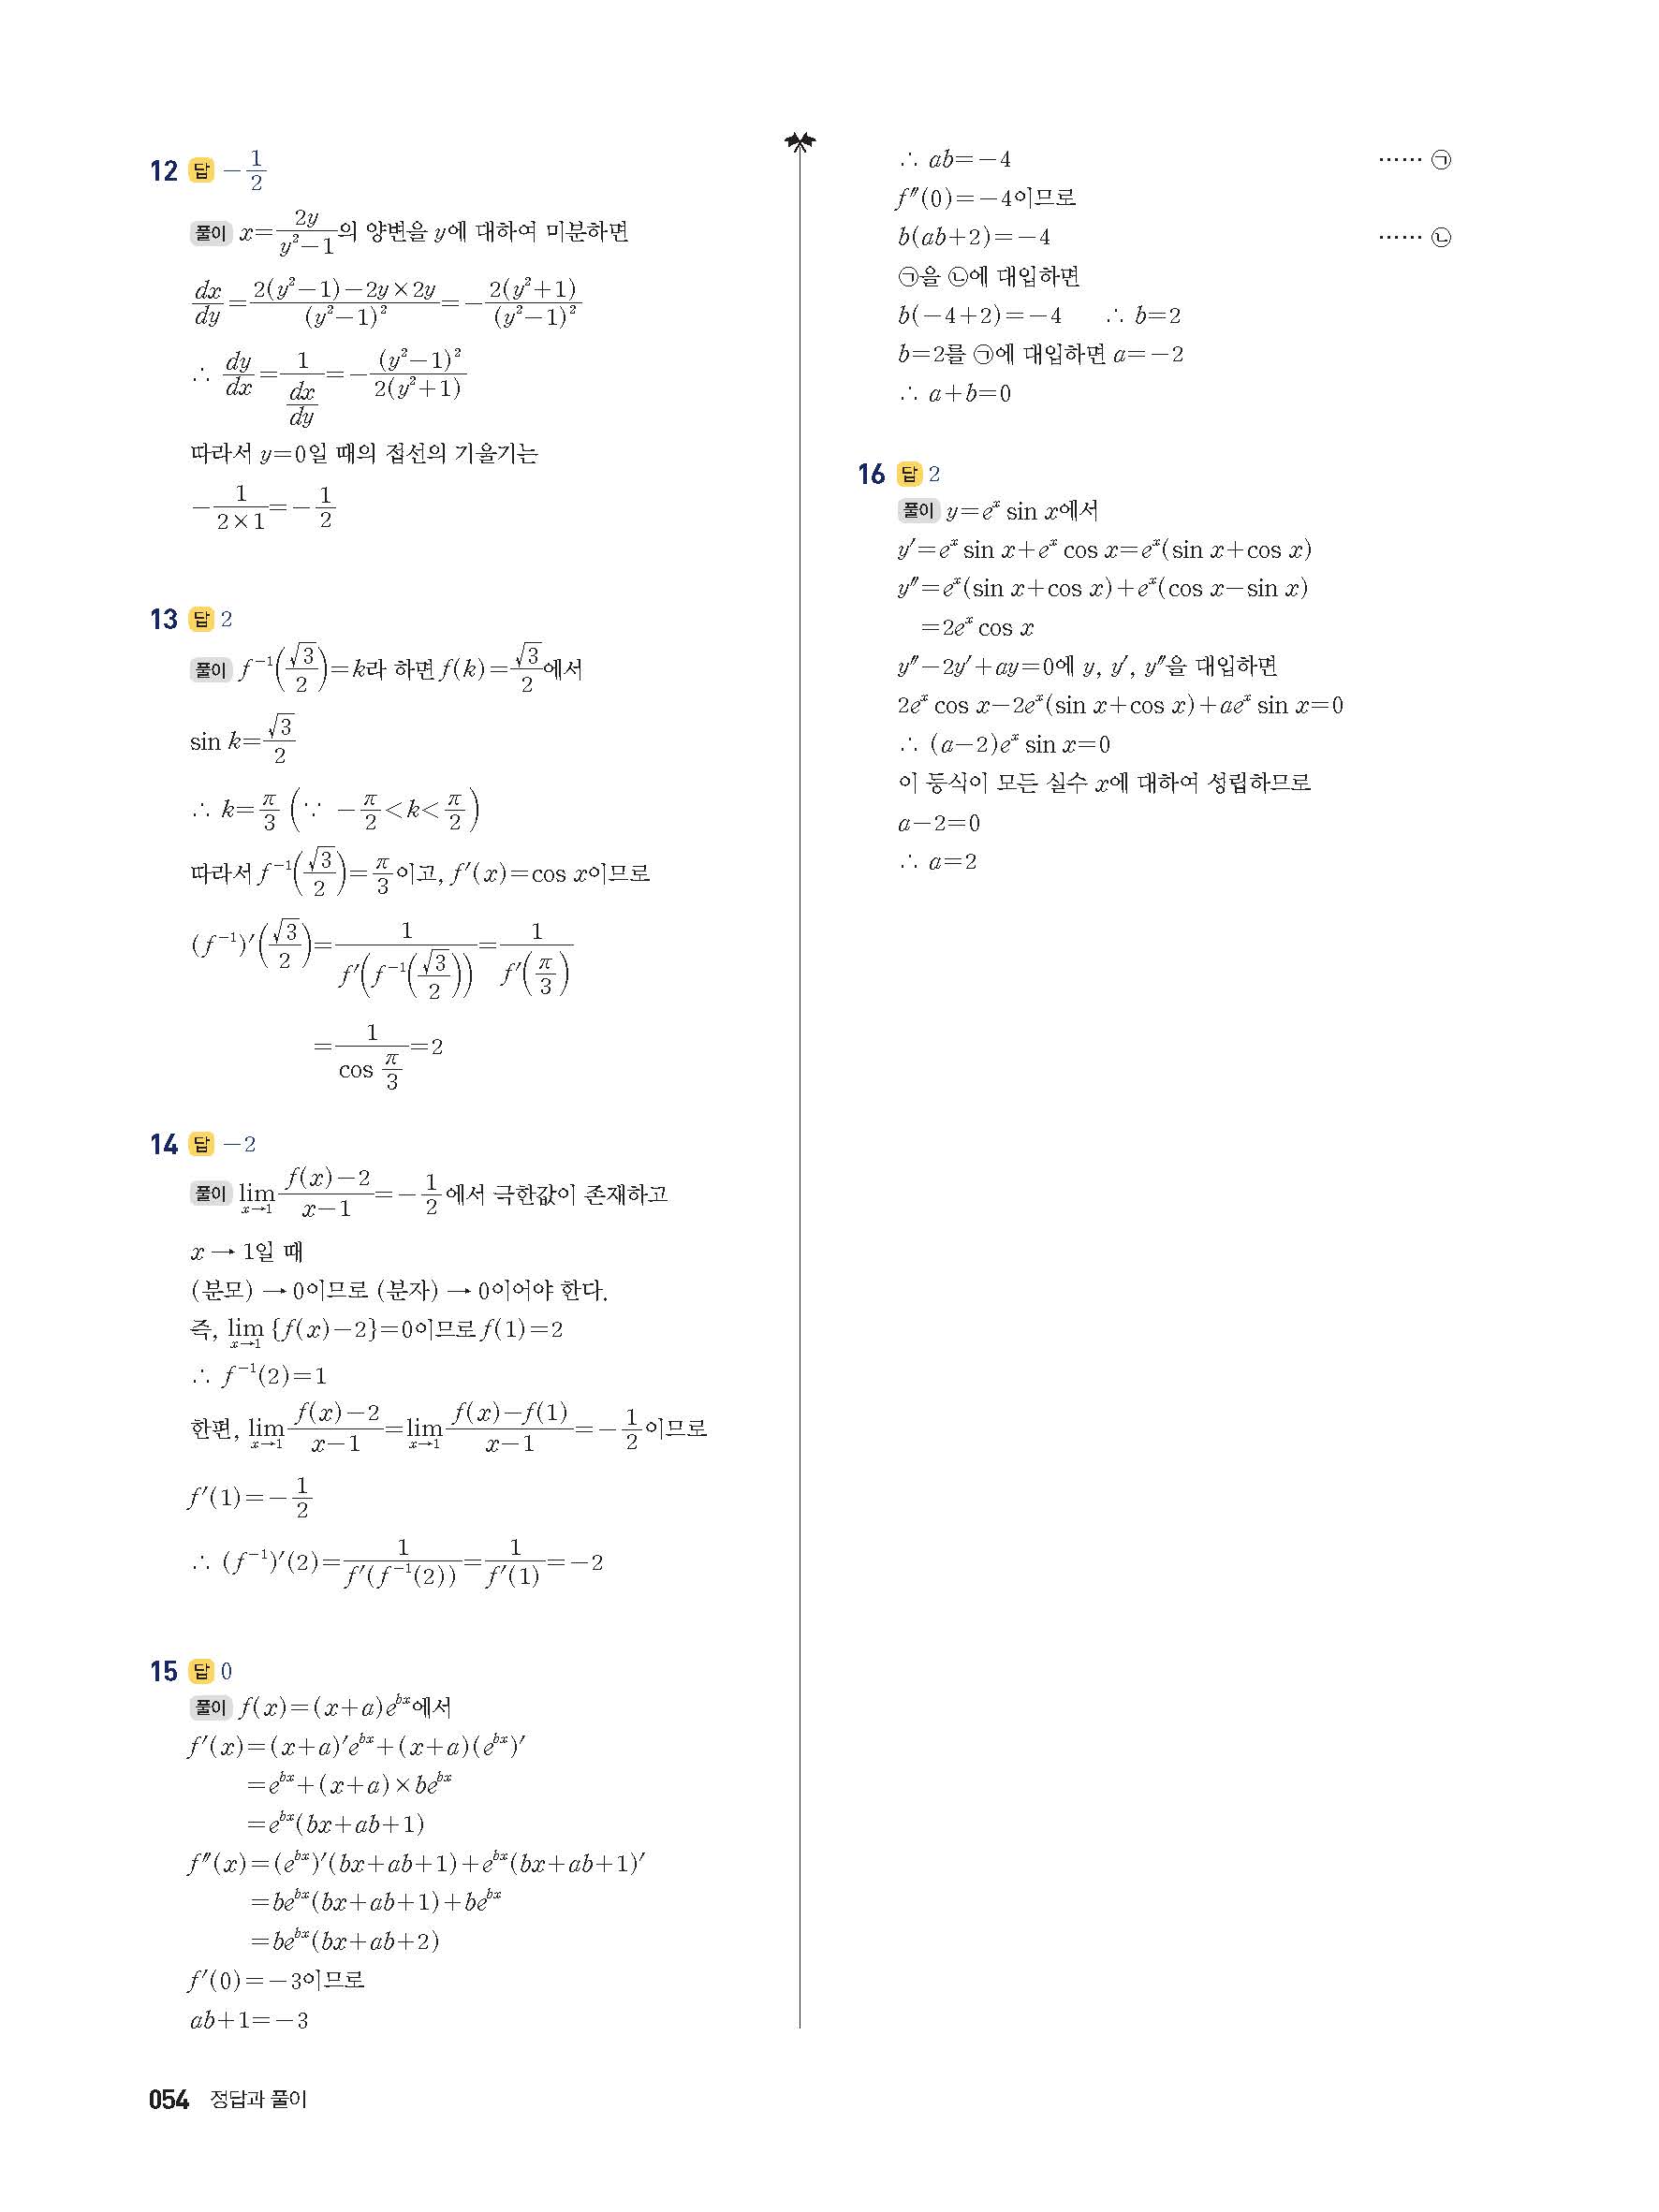 12 답 -1/2
풀이 x=2y/(y²-1)의 양변을 y에 대하여 미분하면
dx/dy={2(y²-1)-2y×2y}/(y²-1)²=-2(y²+1)/(y²-1)²
∴ dy/dx=1/(dx/dy)=-(y²-1)²/2(y²+1)
따라서 y=0일 때의 접선의 기울기는
-1/(2×1)=-1/2
13 답 2
풀이 f⁻¹(√3/2)=k라 하면 f(k)=√3/2에서
sin k=√3/2
∴ k=π/3 (∵ -π/2<k<π/2)
따라서 f⁻¹(√3/2)=π/3이고, f′(x)=cos x이므로
(f⁻¹)′(√3/2)=1/f′(f⁻¹(√3/2))=1/f′(π/3)
=1/cos(π/3)=2
14 답 -2
풀이 lim x→1 (f(x)-2)/(x-1)=-1/2에서 극한값이 존재하고
x → 1일 때
(분모) → 0이므로 (분자) → 0이어야 한다.
즉, lim x→1 {f(x)-2}=0이므로 f(1)=2
∴ f⁻¹(2)=1
한편, lim x→1 (f(x)-2)/(x-1)=lim x→1 (f(x)-f(1))/(x-1)=-1/2이므로
f′(1)=-1/2
∴ (f⁻¹)′(2)=1/f′(f⁻¹(2))=1/f′(1)=-2
15 답 0
풀이 f(x)=(x+a)e^{bx}에서
f′(x)=(x+a)′e^{bx}+(x+a)(e^{bx})′
=e^{bx}+(x+a)×be^{bx}
=e^{bx}(bx+ab+1)
f″(x)=(e^{bx})′(bx+ab+1)+e^{bx}(bx+ab+1)′
=be^{bx}(bx+ab+1)+be^{bx}
=be^{bx}(bx+ab+2)
f′(0)=-3이므로
ab+1=-3
∴ ab=-4 …… ㉠
f″(0)=-4이므로
b(ab+2)=-4 …… ㉡
㉠을 ㉡에 대입하면
b(-4+2)=-4 ∴ b=2
b=2를 ㉠에 대입하면 a=-2
∴ a+b=0
16 답 2
풀이 y=eˣ sin x에서
y′=eˣ sin x+eˣ cos x=eˣ(sin x+cos x)
y″=eˣ(sin x+cos x)+eˣ(cos x-sin x)
=2eˣ cos x
y″-2y′+ay=0에 y, y′, y″을 대입하면
2eˣ cos x-2eˣ(sin x+cos x)+aeˣ sin x=0
∴ (a-2)eˣ sin x=0
이 등식이 모든 실수 x에 대하여 성립하므로
a-2=0
∴ a=2
054 정답과 풀이